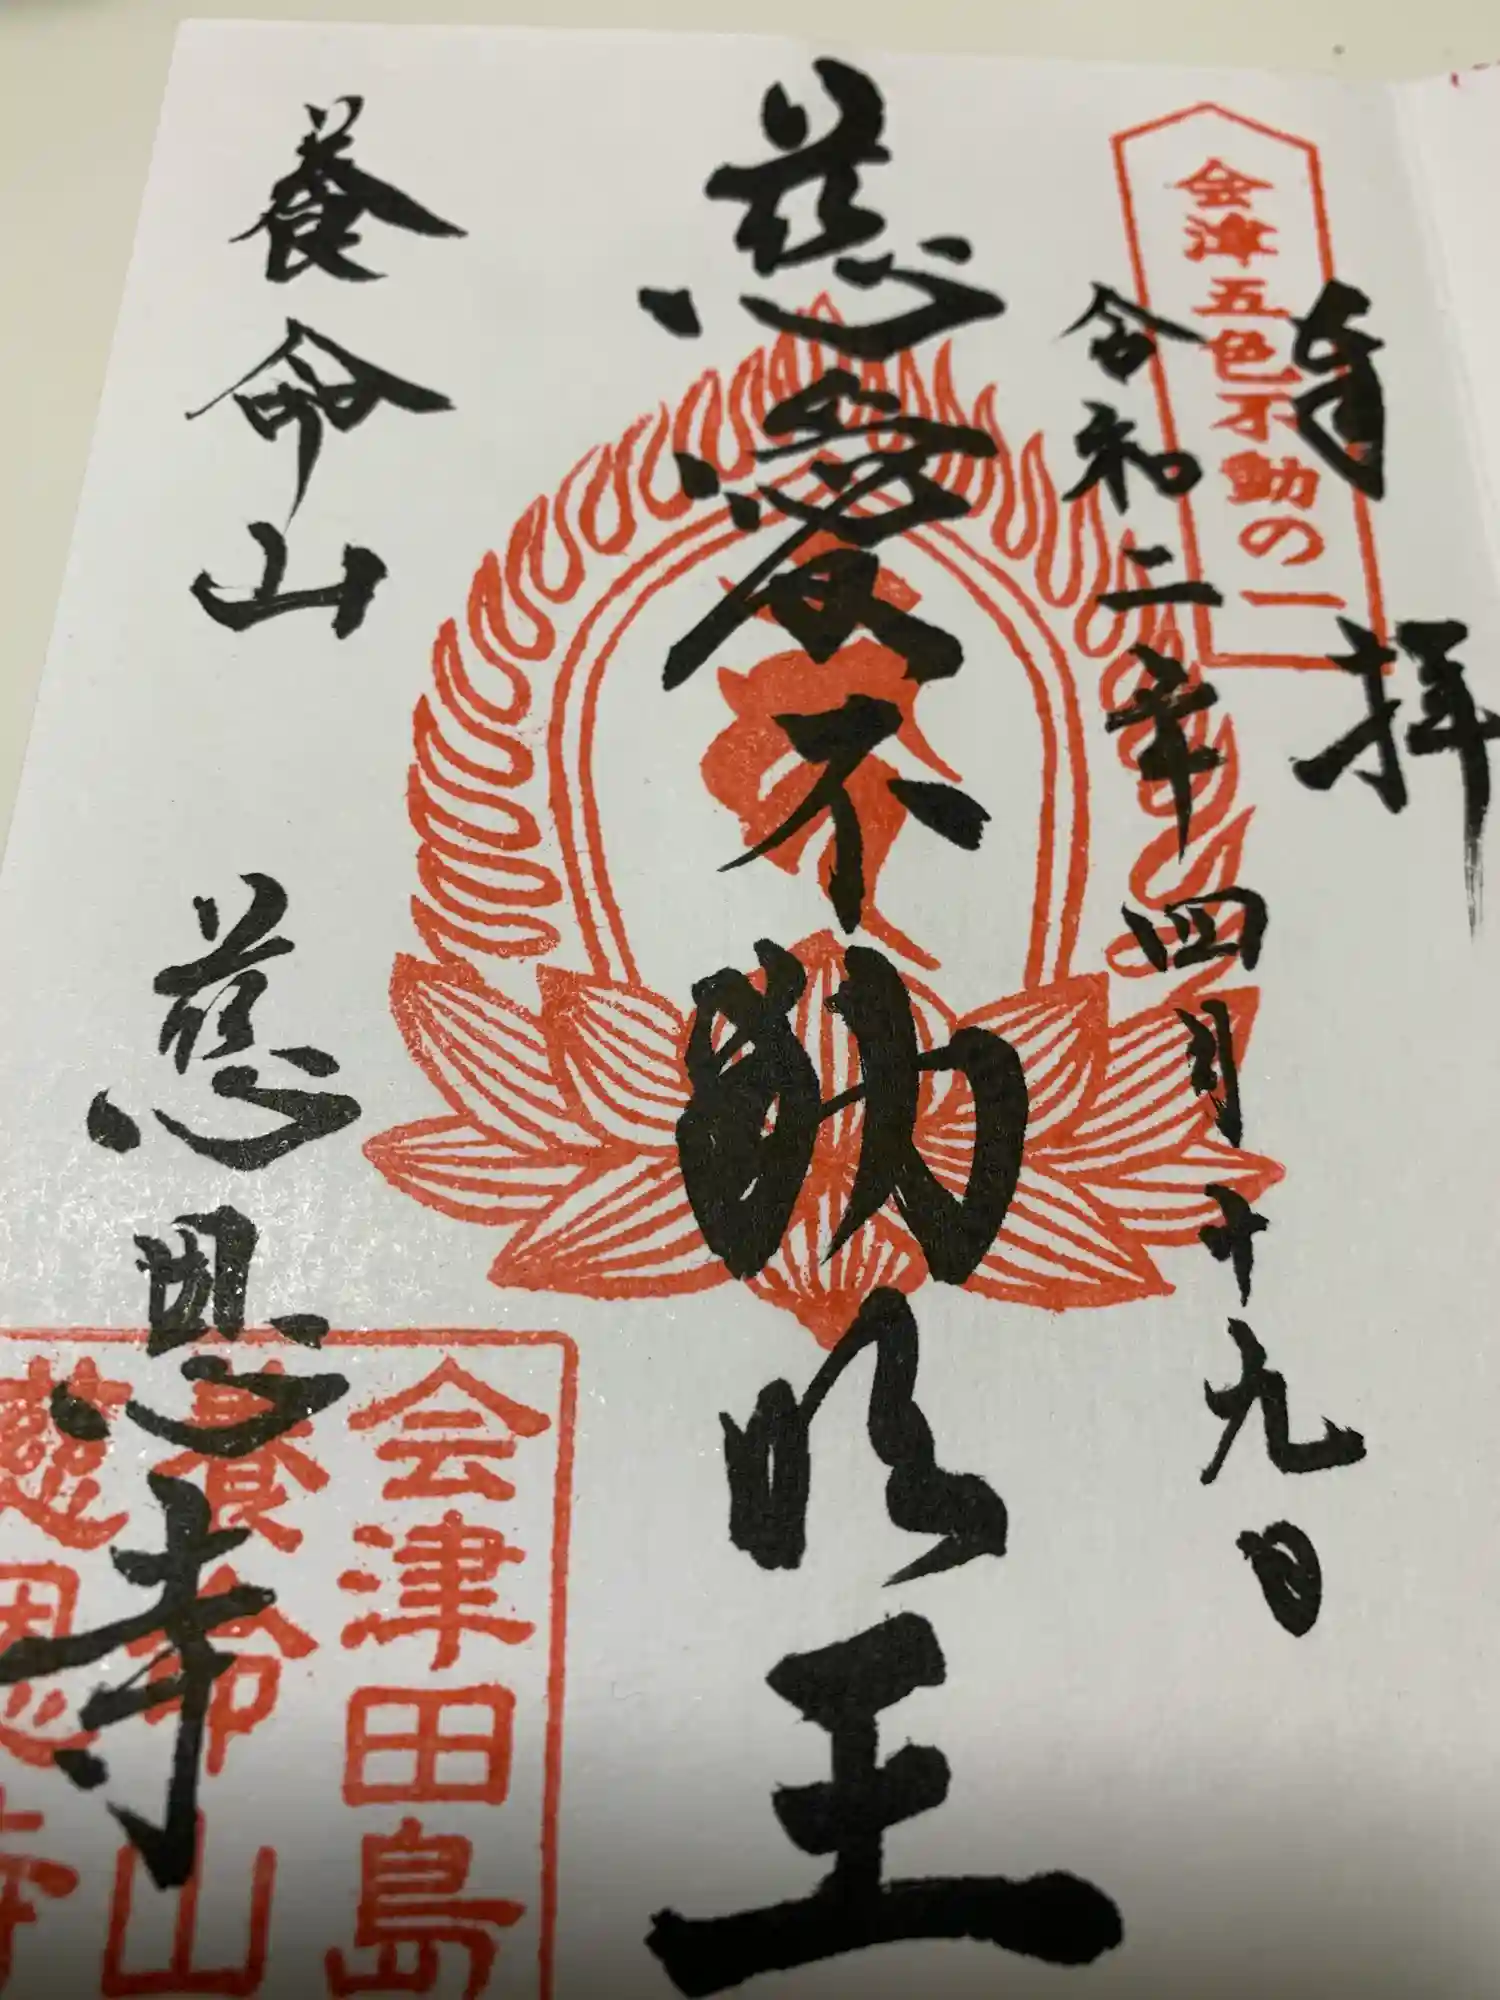 奉拝
会津五色不動の一
令和二年四月十九日
慈愛不動明王
養命山 慈恩寺
会津田島
養命山
慈恩寺